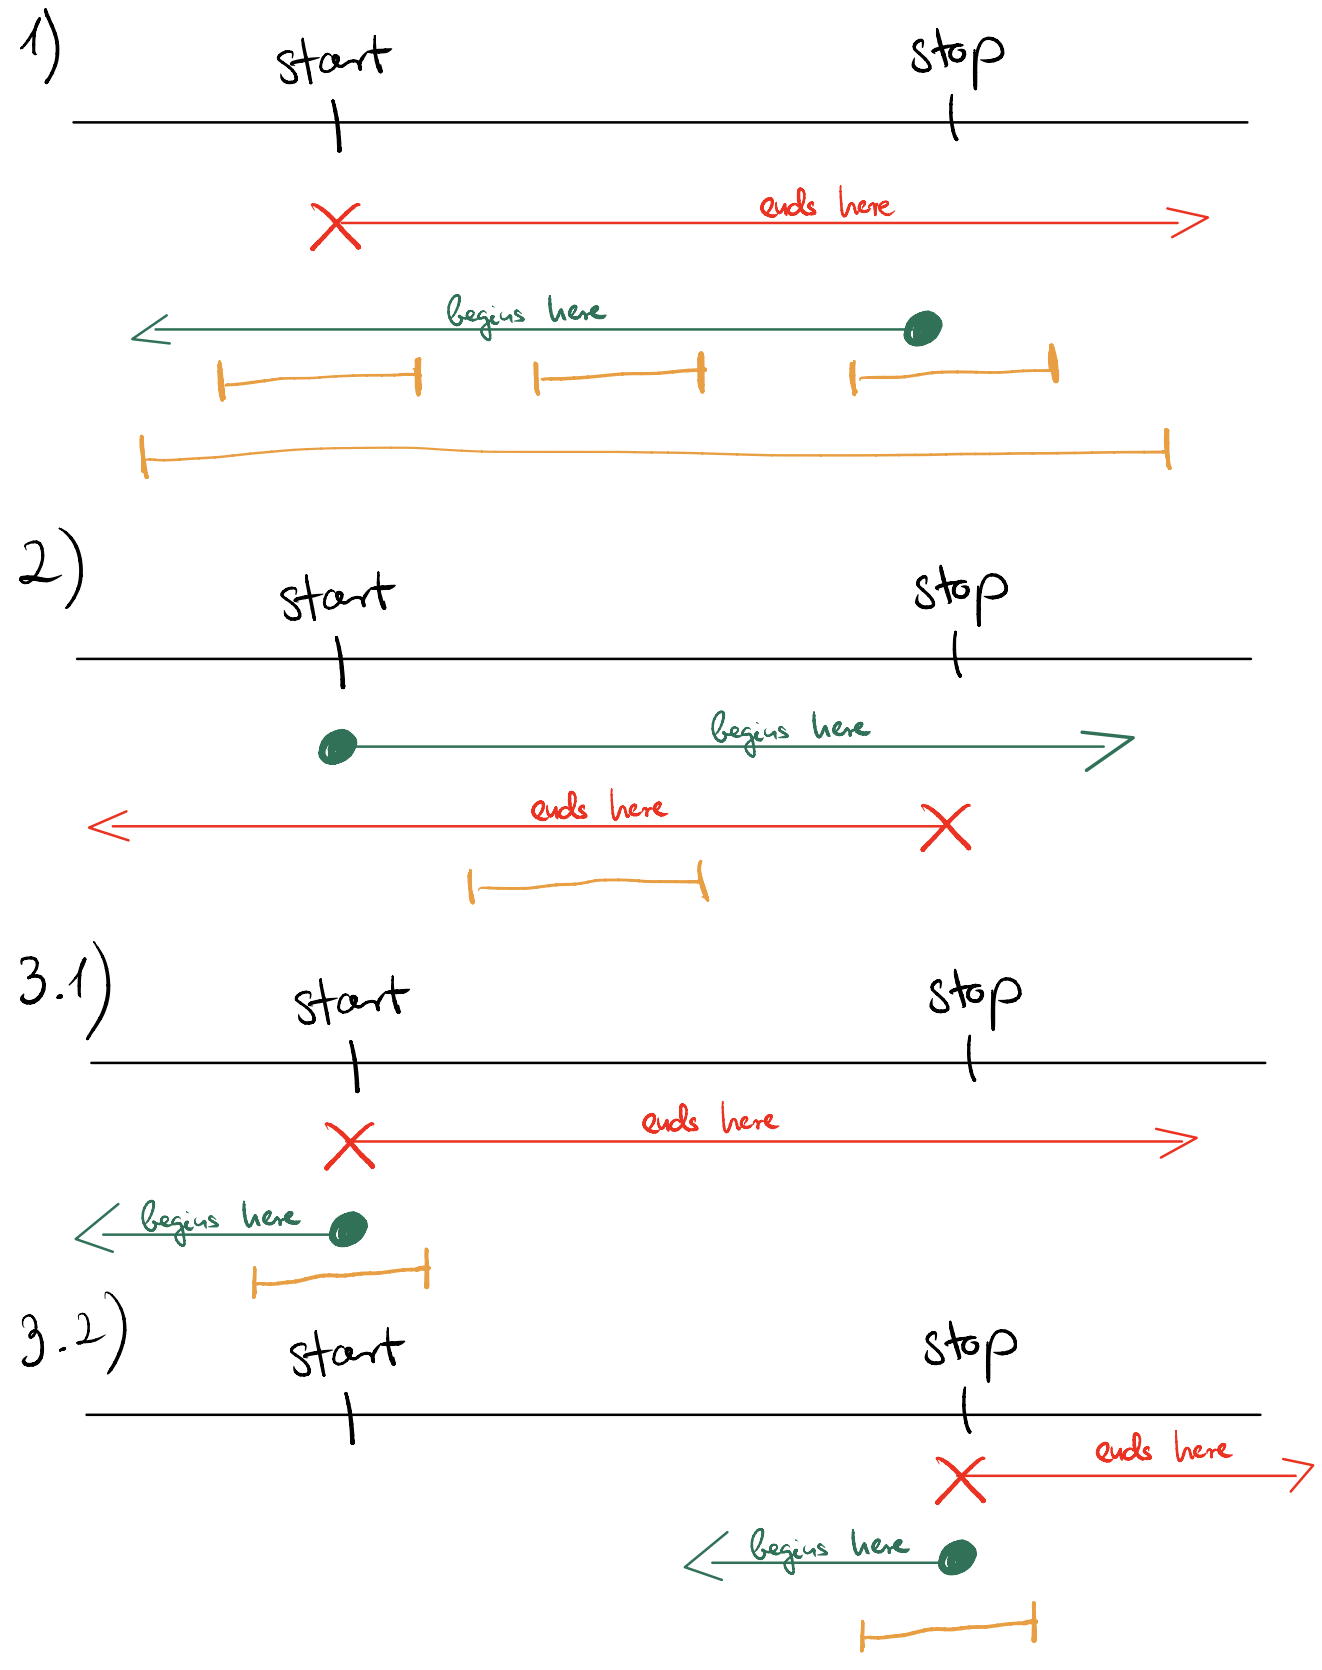 1)
start stop
ends here
begins here
2)
start stop
begins here
ends here
3.1)
start stop
ends here
begins here
3.2)
start stop
ends here
begins here